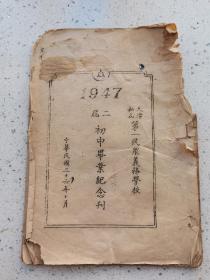 1947
天津私立第一民眾義務學校
二屆
初中畢業紀念刊
中華民國三十六年 月